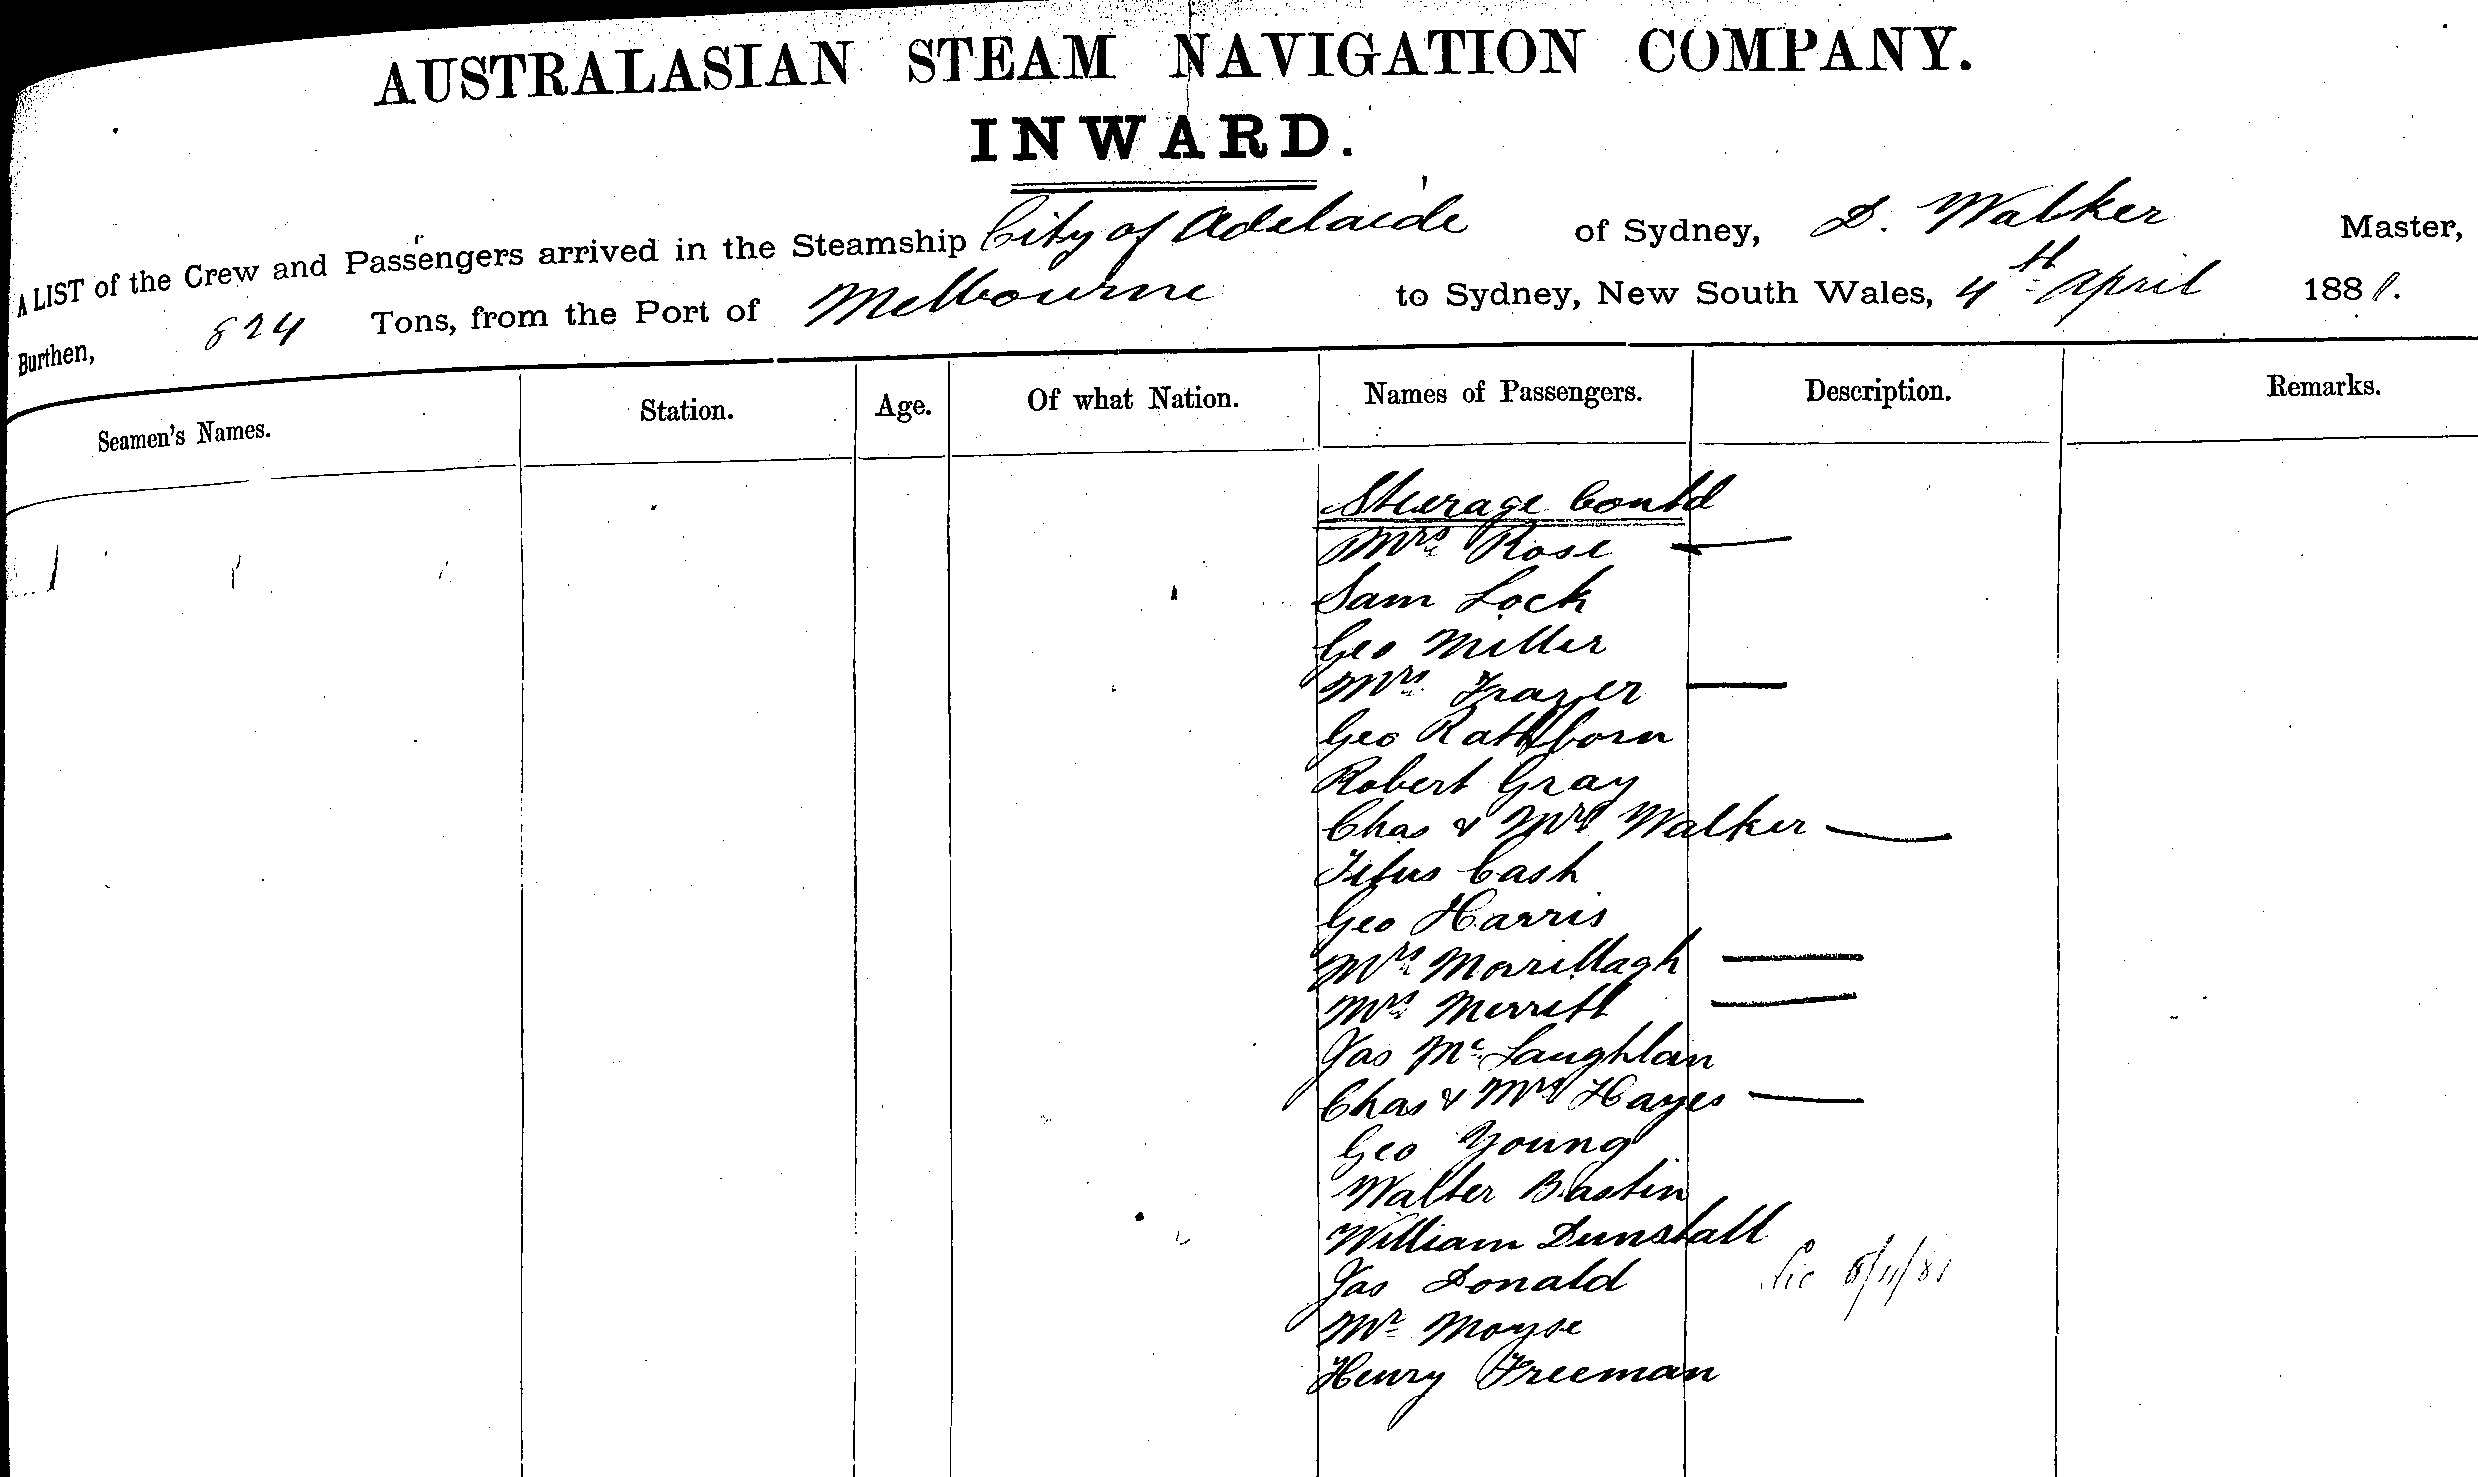 AUSTRALASIAN STEAM NAVIGATION COMPANY.
INWARD.
A LIST of the Crew and Passengers arrived in the Steamship City of Adelaide of Sydney, D. Walker Master,
Burthen, 824 Tons, from the Port of Melbourne to Sydney, New South Wales, 4th April 1881.
Seamen's Names. Station. Age. Of what Nation. Names of Passengers. Description. Remarks.
Steerage Contd
Mrs Rose
Sam Lock
Geo Miller
Mrs Frazer
Geo Rathborn
Robert Gray
Chas & Mrs Walker
Titus Cash
Geo Harris
Mrs Morrillagh
Mrs Merritt
Jas McLaughlan
Chas & Mrs Hayes
Geo Young
Walter Bastin
William Dunstall
Jas Donald
Mr Moyse
Henry Freeman